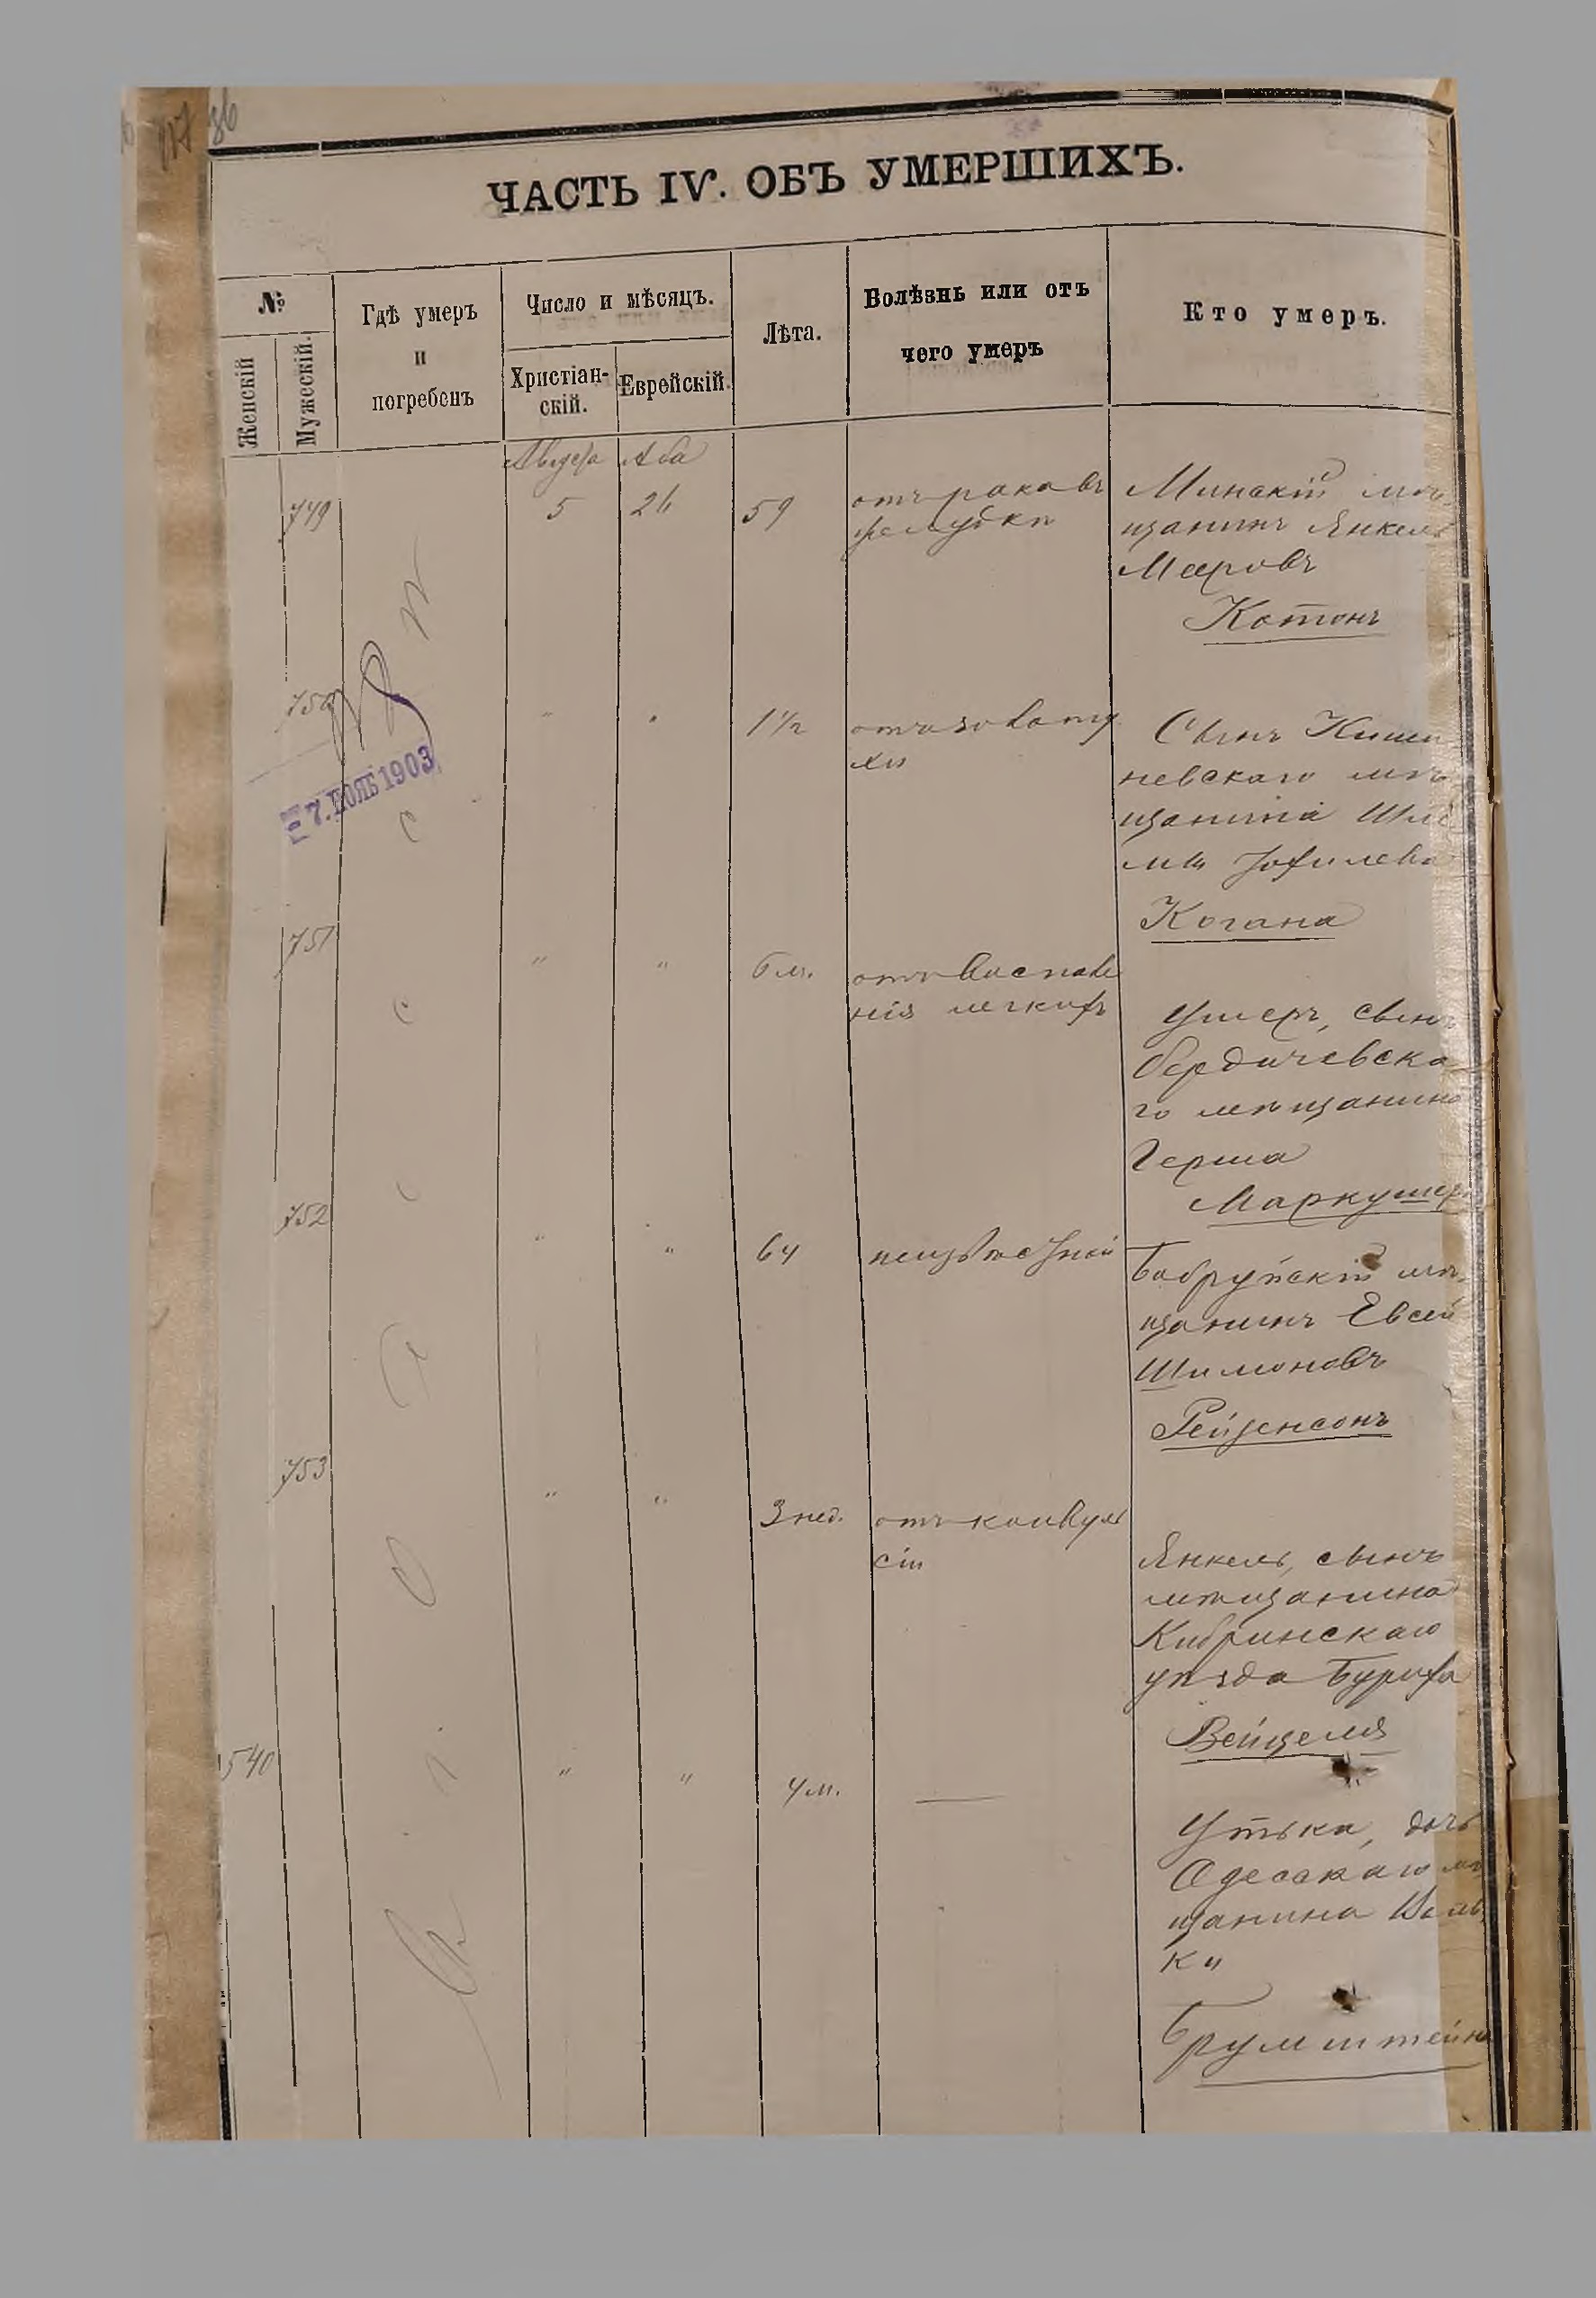 117 86
ЧАСТЬ IV. ОБЪ УМЕРШИХЪ.
№
Женскій
Мужескій.
Гдѣ умеръ
и
погребенъ
Число и мѣсяцъ.
Христіан-
скій.
Еврейскій.
Лѣта.
Болѣзнь или отъ
чего умеръ
Кто умеръ.
Августа Аба
749 5 26 59
отъ рака въ
желудкѣ
Минскій мѣ-
щанинъ Янкель
Мееровъ
Котонъ
750 " " 1 1/2
Сынъ Киши
невскаго мѣ
щанина Шлё
мы
Когана
7. НОЯБ 1903
751 " " 6 м.
отъ воспале
нія легкихъ
Ушеръ, сынъ
бердичевска
го мѣщанина
Герша
Маркушера
752 " " 64
Бобруйскій мѣ-
щанинъ Евсей
Шимоновъ
Рейзенсонъ
753 " " 3 нед.
отъ конвуль
сіи
Янкель, сынъ
мѣщанина
Кобринскаго
уѣзда Буриха
Вейцеля
540 " " 4 м. —
Утька, дочь
Одесскаго мѣ
щанина Вольв
ки
Брумштейна